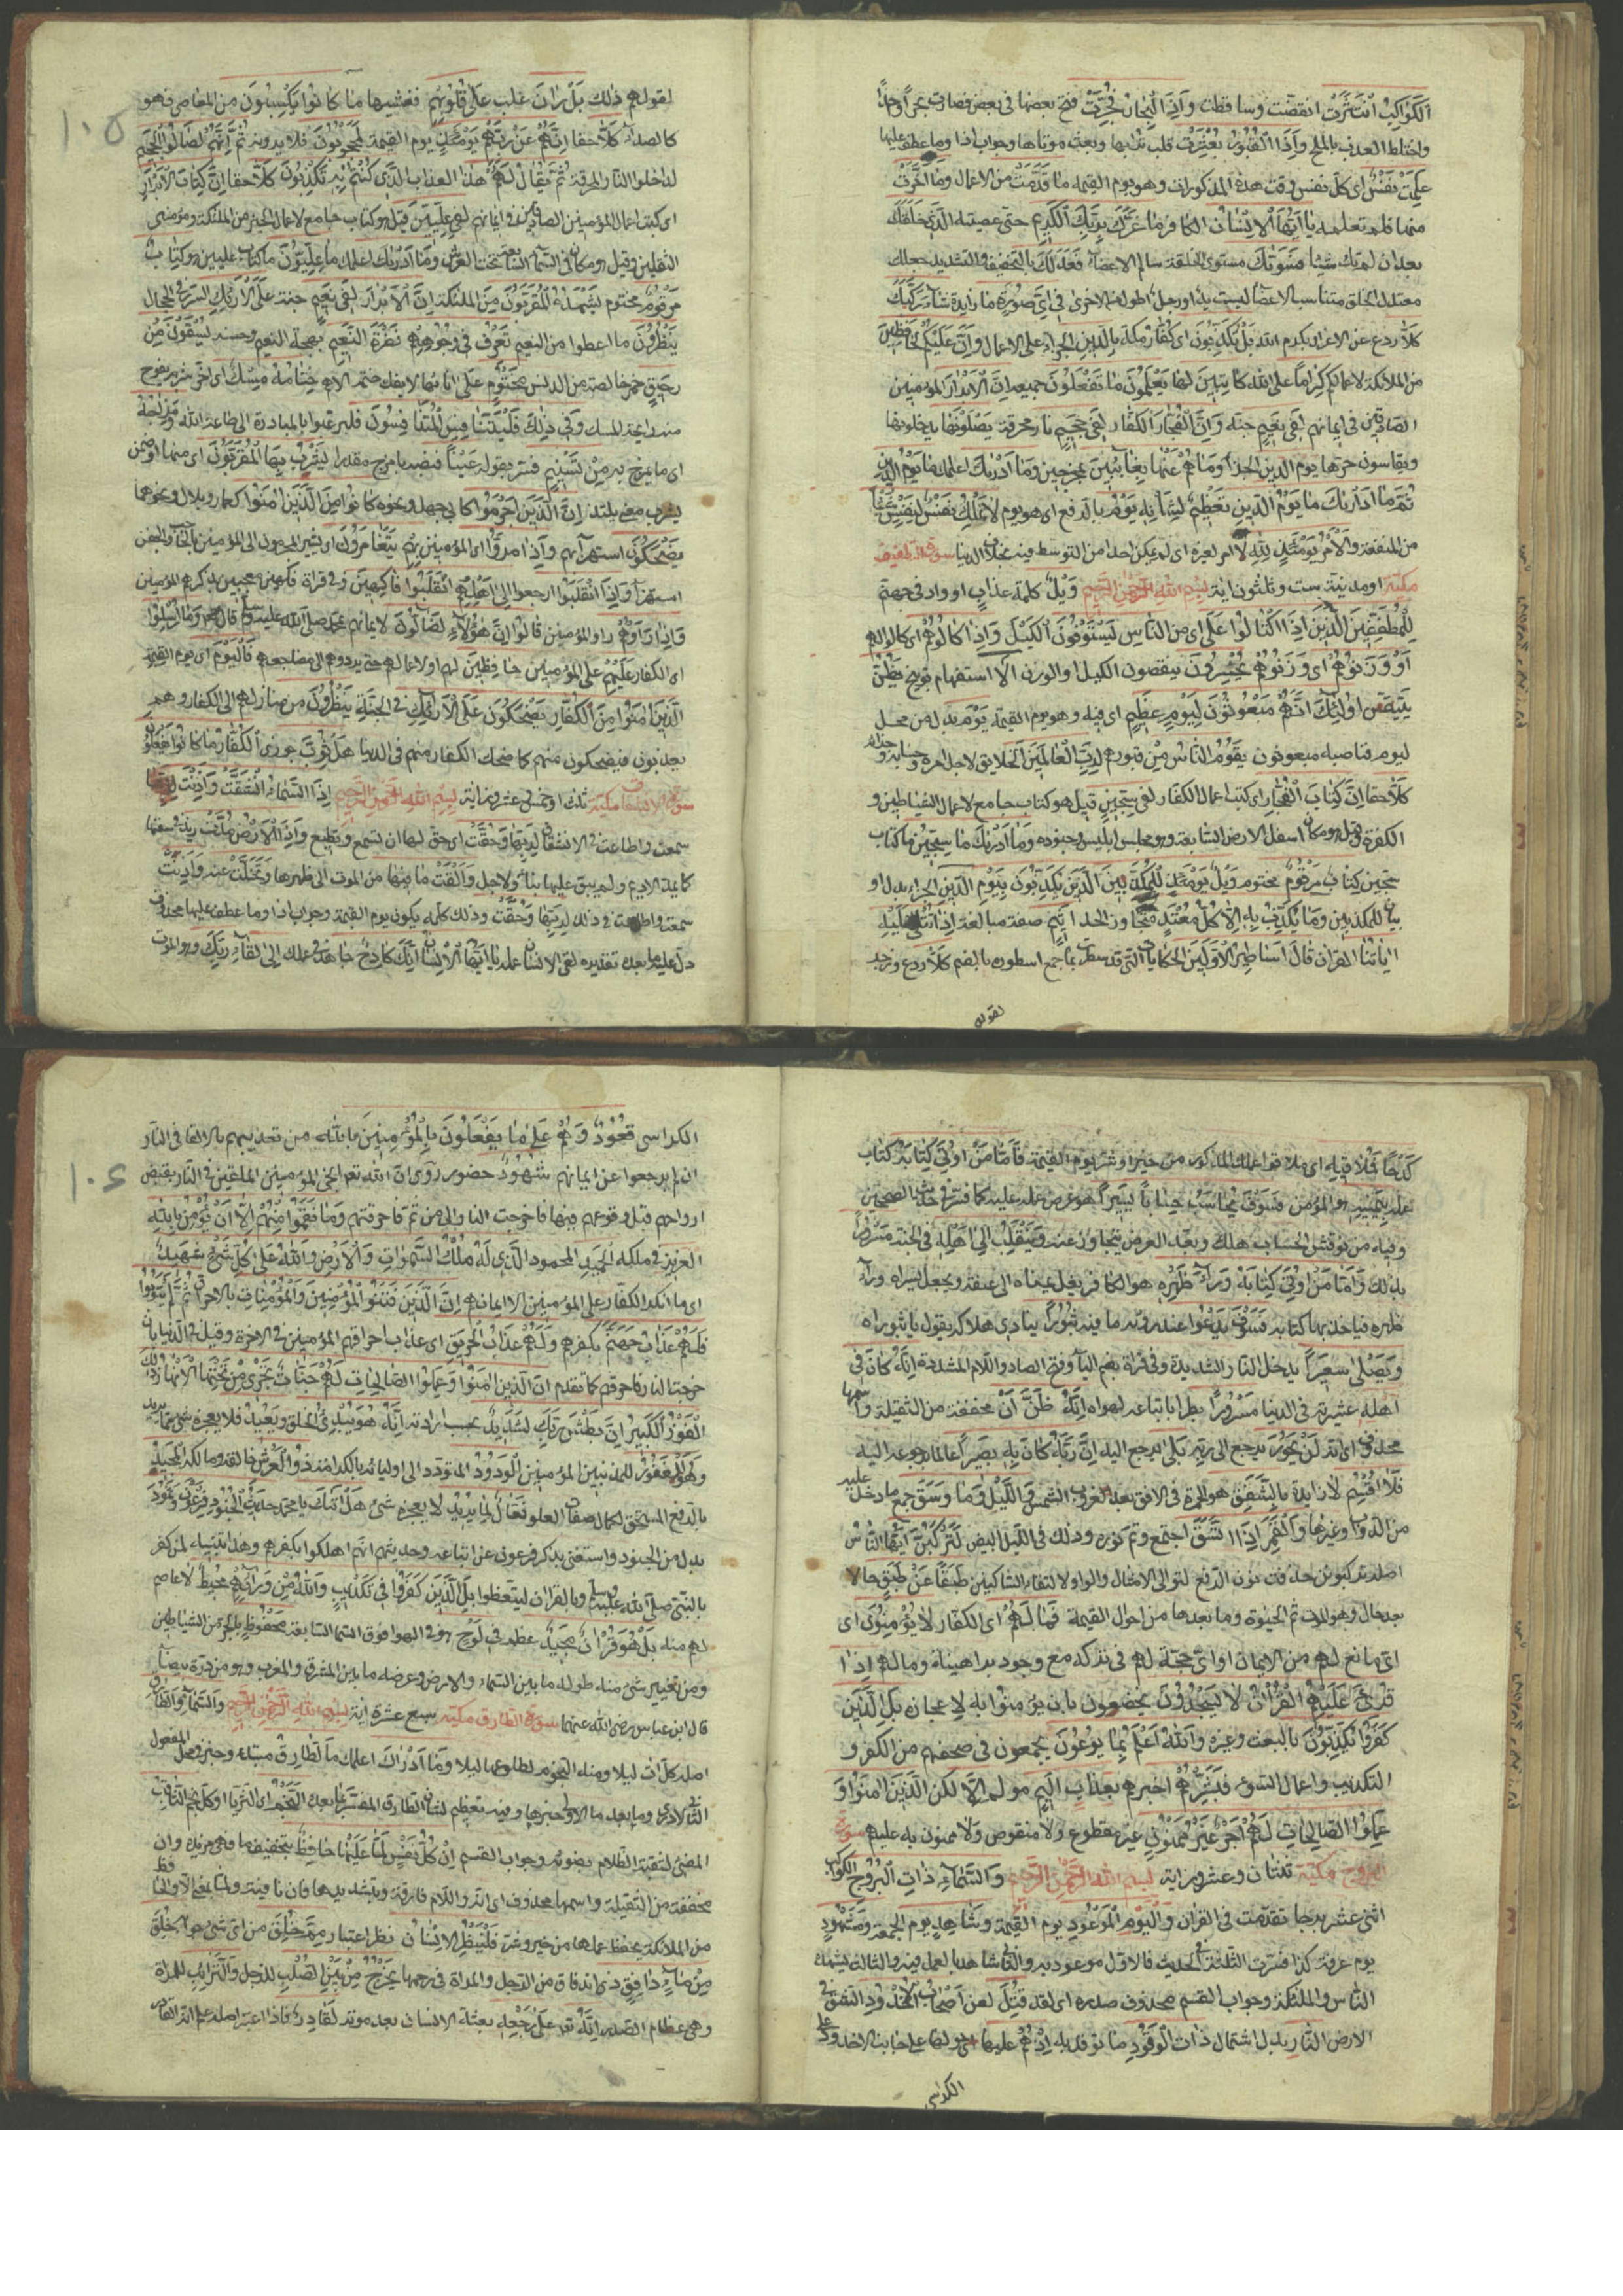 الْكَوَاكِبُ انْتَثَرَتْ انقضت وتساقطت وَإِذَا الْبِحَارُ فُجِّرَتْ فتح بعضها في بعض فصارت بحرا واحدا
واختلط العذب بالملح وَإِذَا الْقُبُورُ بُعْثِرَتْ قلب ترابها وبعث موتاها وجواب اذا وما عطف عليها
عَلِمَتْ نَفْسٌ اى كل نفس وقت هذه المذكورات وهو يوم القيمة مَا قَدَّمَتْ من الاعمال وَمَا أَخَّرَتْ
منها فلم تعلمه يَا أَيُّهَا الْإِنْسَانُ الكافر مَا غَرَّكَ بِرَبِّكَ الْكَرِيمِ حتى عصيته الَّذِي خَلَقَكَ
بعد ان لم تك شيئا فَسَوَّاكَ مستوى الخلقة سالم الاعضاء فَعَدَلَكَ بالتخفيف والتشديد جعلك
معتدل الخلق متناسب الاعضا ليست يد او رجل اطول من الاخرى فِي أَيِّ صُورَةٍ مَا زايدة شَاءَ رَكَّبَكَ
كَلَّا ردع عن الاغترار بكرم الله بَلْ تُكَذِّبُونَ اى كفار مكة بِالدِّينِ الجزاء على الاعمال وَإِنَّ عَلَيْكُمْ لَحَافِظِينَ
من الملائكة لاعمالكم كِرَامًا على الله كَاتِبِينَ لها يَعْلَمُونَ مَا تَفْعَلُونَ جميعه إِنَّ الْأَبْرَارَ المؤمنين
الصادقين في ايمانهم لَفِي نَعِيمٍ جنة وَإِنَّ الْفُجَّارَ الكفار لَفِي جَحِيمٍ نار محرقة يَصْلَوْنَهَا يدخلونها
ويقاسون حرها يوم الدين الجزا وَمَا هُمْ عَنْهَا بِغَائِبِينَ بمخرجين وَمَا أَدْرَاكَ اعلمك مَا يَوْمُ الدِّينِ
ثُمَّ مَا أَدْرَاكَ مَا يَوْمُ الدِّينِ تعظيم لشانه يَوْمُ بالرفع اى هو يوم لَا تَمْلِكُ نَفْسٌ لِنَفْسٍ شَيْئًا
من المنفعة وَالْأَمْرُ يَوْمَئِذٍ لِلَّهِ لا امر لغيره اى لم يمكن احدا من التوسط فيه بخلاف الدنيا سورة التطفيف
مكية او مدنية ست وثلثون اية بسم الله الرحمن الرحيم وَيْلٌ كلمة عذاب او واد في جهنم
لِلْمُطَفِّفِينَ الَّذِينَ إِذَا اكْتَالُوا عَلَى اى من النَّاسِ يَسْتَوْفُونَ الكيل وَإِذَا كَالُوهُمْ اى كالوا لهم
أَوْ وَزَنُوهُمْ اى وزنوا لهم يُخْسِرُونَ ينقصون الكيل او الوزن أَلَا استفهام توبيخ يَظُنُّ
يتيقن أُولَئِكَ أَنَّهُمْ مَبْعُوثُونَ لِيَوْمٍ عَظِيمٍ اى فيه وهو يوم القيمة يَوْمَ بدل من محل
ليوم فناصبه مبعوثون يَقُومُ النَّاسُ من قبورهم لِرَبِّ الْعَالَمِينَ الخلايق لاجل امره وحسابه وجزائه
كَلَّا حقا إِنَّ كِتَابَ الْفُجَّارِ اى كتب اعمال الكفار لَفِي سِجِّينٍ قيل هو كتاب جامع لاعمال الشياطين و
الكفرة وقيل هو مكان اسفل الارض السابعة وهو محل ابليس وجنوده وَمَا أَدْرَاكَ مَا سِجِّينٌ ما كتاب
سجين كِتَابٌ مَرْقُومٌ مختوم وَيْلٌ يَوْمَئِذٍ لِلْمُكَذِّبِينَ الَّذِينَ يُكَذِّبُونَ بِيَوْمِ الدِّينِ الجزاء بدل او
بيان للمكذبين وَمَا يُكَذِّبُ بِهِ إِلَّا كُلُّ مُعْتَدٍ متجاوز الحد أَثِيمٍ صيغة مبالغة إِذَا تُتْلَى عَلَيْهِ
آيَاتُنَا القران قَالَ أَسَاطِيرُ الْأَوَّلِينَ الحكايات التى قد سطرت قديما جمع اسطورة بالضم كَلَّا ردع وزجر
لقوله
١٠٥
لقولهم ذلك بَلْ رَانَ غلب عَلَى قُلُوبِهِمْ فغشيها مَا كَانُوا يَكْسِبُونَ من المعاصى فهو
كالصدا كَلَّا حقا إِنَّهُمْ عَنْ رَبِّهِمْ يَوْمَئِذٍ يوم القيمة لَمَحْجُوبُونَ فلا يرونه ثُمَّ إِنَّهُمْ لَصَالُوا الْجَحِيمِ
لداخلوا النار المحرقة ثُمَّ يُقَالُ لهم هَذَا العذاب الَّذِي كُنْتُمْ بِهِ تُكَذِّبُونَ كَلَّا حقا إِنَّ كِتَابَ الْأَبْرَارِ
اى كتب اعمال المؤمنين الصادقين في ايمانهم لَفِي عِلِّيِّينَ قيل هو كتاب جامع لاعمال الخير من الملئكة ومؤمنى
الثقلين وقيل هو مكان في السماء السابعة تحت العرش وَمَا أَدْرَاكَ اعلمك مَا عِلِّيُّونَ ما كتاب عليين هو كِتَابٌ
مَرْقُومٌ مختوم يَشْهَدُهُ الْمُقَرَّبُونَ من الملئكة إِنَّ الْأَبْرَارَ لَفِي نَعِيمٍ جنة عَلَى الْأَرَائِكِ السرر في الحجال
يَنْظُرُونَ ما اعطوا من النعيم تَعْرِفُ فِي وُجُوهِهِمْ نَضْرَةَ النَّعِيمِ بهجة النعيم وحسنه يُسْقَوْنَ مِنْ
رَحِيقٍ خمر خالصة من الدنس مَخْتُومٍ على انائها لا يفك ختمه الا هم خِتَامُهُ مِسْكٌ اى اخر شربه يفوح
منه رائحة المسك وَفِي ذَلِكَ فَلْيَتَنَافَسِ الْمُتَنَافِسُونَ فليرغبوا بالمبادرة الى طاعة الله وَمِزَاجُهُ
اى ما يمزج به مِنْ تَسْنِيمٍ فسر بقوله عَيْنًا فنصبه بامدح مقدرا يَشْرَبُ بِهَا الْمُقَرَّبُونَ اى منها او ضمن
يشرب معنى يلتذ إِنَّ الَّذِينَ أَجْرَمُوا كابى جهل ونحوه كَانُوا مِنَ الَّذِينَ آمَنُوا كعمار وبلال ونحوهما
يَضْحَكُونَ استهزاء بهم وَإِذَا مَرُّوا اى المؤمنين بِهِمْ يَتَغَامَزُونَ اى يشير المجرمون الى المؤمنين بالجفن والحاجب
استهزأ وَإِذَا انْقَلَبُوا رجعوا إِلَى أَهْلِهِمُ انْقَلَبُوا فَاكِهِينَ وفي قراة فكهين معجبين بذكرهم المؤمنين
وَإِذَا رَأَوْهُمْ راو المؤمنين قَالُوا إِنَّ هَؤُلَاءِ لَضَالُّونَ لايمانهم بمحمد صلى الله عليه وسلم قال تعالى وَمَا أُرْسِلُوا
اى الكفار عَلَيْهِمْ على المؤمنين حَافِظِينَ لهم او لاعمالهم حتى يردوهم الى مصالحهم فَالْيَوْمَ اى يوم القيمة
الَّذِينَ آمَنُوا مِنَ الْكُفَّارِ يَضْحَكُونَ عَلَى الْأَرَائِكِ في الجنة يَنْظُرُونَ من منازلهم الى الكفار وهم
يعذبون فيضحكون منهم كما ضحك الكفار منهم في الدنيا هَلْ ثُوِّبَ جوزى الْكُفَّارُ مَا كَانُوا يَفْعَلُونَ
سورة الانشقاق مكية ثلث او خمس وعشرون اية بسم الله الرحمن الرحيم إِذَا السَّمَاءُ انْشَقَّتْ وَأَذِنَتْ
سمعت واطاعت في الانشقاق لِرَبِّهَا وَحُقَّتْ اى حق لها ان تسمع وتطيع وَإِذَا الْأَرْضُ مُدَّتْ زيد في سعتها
كما يمد الاديم ولم يبق عليها بناء ولا جبل وَأَلْقَتْ مَا فِيهَا من الموتى الى ظهرها وَتَخَلَّتْ عنه وَأَذِنَتْ
سمعت واطاعت في ذلك لِرَبِّهَا وَحُقَّتْ وذلك كله يكون يوم القيمة وجواب اذا وما عطف عليها محذوف
دل عليه ما بعده تقديره لقى الانسان عمله يَا أَيُّهَا الْإِنْسَانُ إِنَّكَ كَادِحٌ جاهد في عملك إِلَى لقاء رَبِّكَ وهو الموت
كَدْحًا فَمُلَاقِيهِ اى ملاق عملك المذكور من خير او شر يوم القيمة فَأَمَّا مَنْ أُوتِيَ كِتَابَهُ كتاب
عمله بِيَمِينِهِ هو المؤمن فَسَوْفَ يُحَاسَبُ حِسَابًا يَسِيرًا هو عرض عمله عليه كما فسر في حديث الصحيحين
وفيه من نوقش الحساب هلك وبعد العرض يتجاوز عنه وَيَنْقَلِبُ إِلَى أَهْلِهِ في الجنة مَسْرُورًا
بذلك وَأَمَّا مَنْ أُوتِيَ كِتَابَهُ وَرَاءَ ظَهْرِهِ هو الكافر يغل يمناه الى عنقه ويجعل يسراه وراء
ظهره فياخذ بها كتابه فَسَوْفَ يَدْعُوا عند رؤية ما فيه ثُبُورًا ينادى هلاكه بقوله يا ثبوراه
وَيَصْلَى سَعِيرًا يدخل النار الشديدة وفي قراة بضم الياء وفتح الصاد واللام المشددة إِنَّهُ كَانَ فِي
أَهْلِهِ عشيرته في الدنيا مَسْرُورًا بطرا باتباعه لهواه إِنَّهُ ظَنَّ أَنْ مخففة من الثقيلة واسمها
محذوف اى انه لَنْ يَحُورَ يرجع الى ربه بَلَى يرجع اليه إِنَّ رَبَّهُ كَانَ بِهِ بَصِيرًا عالما برجوعه اليه
فَلَا أُقْسِمُ لا زايدة بِالشَّفَقِ هو الحمرة في الافق بعد غروب الشمس وَاللَّيْلِ وَمَا وَسَقَ جمع ما دخل عليه
من الدواب وغيرها وَالْقَمَرِ إِذَا اتَّسَقَ اجتمع وتم نوره وذلك في الليالى البيض لَتَرْكَبُنَّ ايها الناس
اصله تركبونن حذفت نون الرفع لتوالى الامثال والواو لالتقاء الساكنين طَبَقًا عَنْ طَبَقٍ حالا
بعد حال وهو الموت ثم الحيوة وما بعدها من احوال القيمة فَمَا لَهُمْ اى الكفار لَا يُؤْمِنُونَ اى
اى مانع لهم من الايمان او اى حجة لهم في تركه مع وجود براهينه وما لهم إِذَا
قُرِئَ عَلَيْهِمُ الْقُرْآنُ لَا يَسْجُدُونَ يخضعون بان يؤمنوا به لاعجازه بَلِ الَّذِينَ
كَفَرُوا يُكَذِّبُونَ بالبعث وغيره وَاللَّهُ أَعْلَمُ بِمَا يُوعُونَ يجمعون في صحفهم من الكفر و
التكذيب واعمال السوء فَبَشِّرْهُمْ اخبرهم بِعَذَابٍ أَلِيمٍ مولم إِلَّا لكن الَّذِينَ آمَنُوا وَ
عَمِلُوا الصَّالِحَاتِ لَهُمْ أَجْرٌ غَيْرُ مَمْنُونٍ غير مقطوع ولا منقوص ولا ممنون به عليهم سورة
البروج مكية ثنتان وعشرون اية بسم الله الرحمن الرحيم وَالسَّمَاءِ ذَاتِ الْبُرُوجِ الكواكب
اثنى عشر برجا تقدمت في الفرقان وَالْيَوْمِ الْمَوْعُودِ يوم القيمة وَشَاهِدٍ يوم الجمعة وَمَشْهُودٍ
يوم عرفة كذا فسرت الثلثة في الحديث فالاول موعود به والثانى شاهد بالعمل فيه والثالث يشهده
الناس والملئكة وجواب القسم محذوف صدره اى لقد قُتِلَ لعن أَصْحَابُ الْأُخْدُودِ الشق في
الارض النَّارِ بدل اشتمال ذَاتِ الْوَقُودِ ما توقد به إِذْ هُمْ عَلَيْهَا حولها على جانب الاخدود على
الكراسى
١٠٦
الكراسى قُعُودٌ وَهُمْ عَلَى مَا يَفْعَلُونَ بِالْمُؤْمِنِينَ بالله من تعذيبهم بالالقا في النار
ان لم يرجعوا عن ايمانهم شُهُودٌ حضور روى ان الله تعالى انجى المؤمنين الملقين في النار بقبض
ارواحهم قبل وقوعهم فيها فاخرجت النار الى من ثم فاحرقتهم وَمَا نَقَمُوا مِنْهُمْ إِلَّا أَنْ يُؤْمِنُوا بِاللَّهِ
الْعَزِيزِ في ملكه الْحَمِيدِ المحمود الَّذِي لَهُ مُلْكُ السَّمَوَاتِ وَالْأَرْضِ وَاللَّهُ عَلَى كُلِّ شَيْءٍ شَهِيدٌ
اى ما انكر الكفار على المؤمنين الا ايمانهم إِنَّ الَّذِينَ فَتَنُوا الْمُؤْمِنِينَ وَالْمُؤْمِنَاتِ بالاحراق ثُمَّ لَمْ يَتُوبُوا
فَلَهُمْ عَذَابُ جَهَنَّمَ بكفرهم وَلَهُمْ عَذَابُ الْحَرِيقِ اى عذاب احراقهم المؤمنين في الاخرة وقيل في الدنيا بان
خرجت النار فاحرقتهم كما تقدم إِنَّ الَّذِينَ آمَنُوا وَعَمِلُوا الصَّالِحَاتِ لَهُمْ جَنَّاتٌ تَجْرِي مِنْ تَحْتِهَا الْأَنْهَارُ ذَلِكَ
الْفَوْزُ الْكَبِيرُ إِنَّ بَطْشَ رَبِّكَ لَشَدِيدٌ بحسب ارادته إِنَّهُ هُوَ يُبْدِئُ الخلق وَيُعِيدُ فلا يعجزه شئ عما يريد
وَهُوَ الْغَفُورُ للمذنبين المؤمنين الْوَدُودُ المتودد الى اوليائه بالكرامة ذُو الْعَرْشِ خالقه ومالكه الْمَجِيدُ
بالرفع المستحق لكمال صفات العلو فَعَّالٌ لِمَا يُرِيدُ لا يعجزه شئ هَلْ أَتَاكَ يا محمد حَدِيثُ الْجُنُودِ فِرْعَوْنَ وَثَمُودَ
بدل من الجنود واستغنى بذكر فرعون عن اتباعه وحديثهم انهم اهلكوا بكفرهم وهذا تنبيه لمن كفر
بالنبى صلى الله عليه وسلم وبالقران ليتعظوا بَلِ الَّذِينَ كَفَرُوا فِي تَكْذِيبٍ وَاللَّهُ مِنْ وَرَائِهِمْ مُحِيطٌ لا عاصم
لهم منه بَلْ هُوَ قُرْآنٌ مَجِيدٌ عظيم فِي لَوْحٍ هو في الهوا فوق السما السابعة مَحْفُوظٍ بالجر من الشياطين
ومن تغيير شئ منه طوله ما بين السماء والارض وعرضه ما بين المشرق والمغرب وهو من درة بيضاء
قال ابن عباس رضى الله عنهما سورة الطارق مكية سبع عشرة اية بسم الله الرحمن الرحيم وَالسَّمَاءِ وَالطَّارِقِ
اصله كل ات ليلا ومنه النجوم لطلوعها ليلا وَمَا أَدْرَاكَ اعلمك مَا الطَّارِقُ مبتدء وخبر في محل المفعول
الثانى لادرى وما بعد ما الاولى خبرها وفيه تعظيم لشان الطارق المفسر بما بعده النَّجْمُ اى الثريا او كل نجم الثَّاقِبُ
المضئ لثقبه الظلام بضوئه وجواب القسم إِنْ كُلُّ نَفْسٍ لَمَّا عَلَيْهَا حَافِظٌ بتخفيف ما فهى مزيدة وان
مخففة من الثقيلة واسمها محذوف اى انه واللام فارقة وبتشديدها فان نافية ولما بمعنى الا والحافظ
من الملائكة يحفظ عملها من خير وشر فَلْيَنْظُرِ الْإِنْسَانُ نظر اعتبار مِمَّ خُلِقَ من اى شئ جوابه خُلِقَ
مِنْ مَاءٍ دَافِقٍ ذى اندفاق من الرجل والمراة في رحمها يَخْرُجُ مِنْ بَيْنِ الصُّلْبِ للرجل وَالتَّرَائِبِ للمراة
وهى عظام الصدر إِنَّهُ تعالى عَلَى رَجْعِهِ بعثه الانسان بعد موته لَقَادِرٌ فاذا اعتبر اصله علم ان القادر